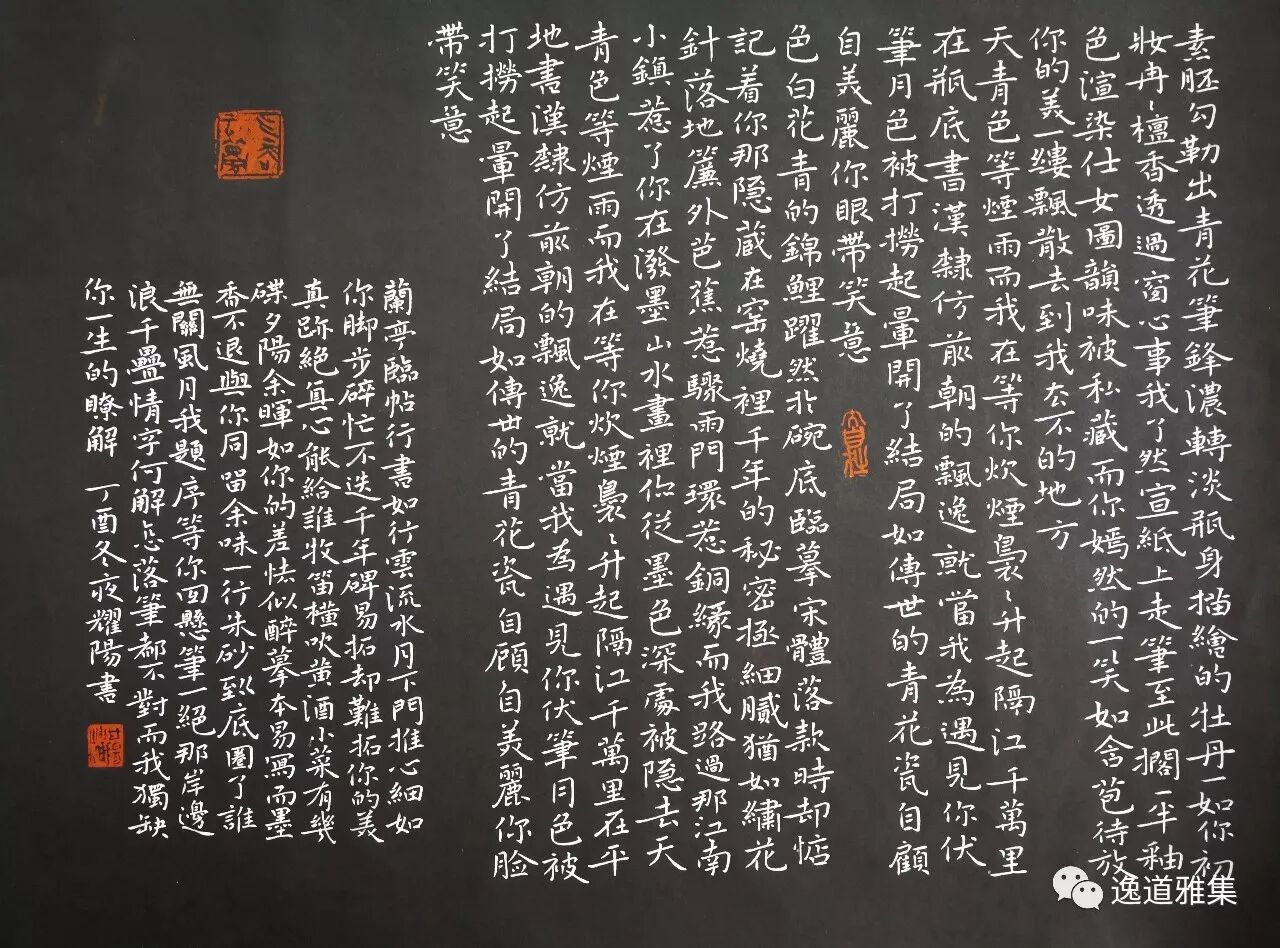 素胚勾勒出青花筆鋒濃轉淡瓶身描繪的牡丹一如你初
妝冉冉檀香透過窗心事我了然宣紙上走筆至此擱一半釉
色渲染仕女圖韻味被私藏而你嫣然的一笑如含苞待放
你的美一縷飄散去到我去不的地方
天青色等煙雨而我在等你炊煙裊裊升起隔江千萬里
在瓶底書漢隸仿前朝的飄逸就當我為遇見你伏
筆月色被打撈起暈開了結局如傳世的青花瓷自顧
自美麗你眼帶笑意
色白花青的錦鯉躍然於碗底臨摹宋體落款時却惦
記着你那隐藏在窑燒裡千年的秘密極細膩猶如繡花
針落地簾外芭蕉惹驟雨門環惹銅緣而我路過那江南
小鎮惹了你在潑墨山水畫裡你從墨色深處被隐去天
青色等煙雨而我在等你炊煙裊裊升起隔江千萬里在平
地書漢隸仿前朝的飄逸就當我為遇見你伏筆月色被
打撈起暈開了結局如傳世的青花瓷自顧自美麗你脸
帶笑意
蘭亭臨帖行書如行雲流水月下門推心細如
你脚步碎忙不迭千年碑易拓却難拓你的美
真跡絕真心能給誰牧笛橫吹黄酒小菜有幾
碟夕陽余暉如你的羞怯似醉摹本易寫而墨
香不退與你同留余味一行朱砂到底圈了誰
無關風月我題序等你回懸筆一絕那岸邊
浪千疊情字何解怎落筆都不對而我獨缺
你一生的瞭解 丁酉冬夜耀陽書
逸道雅集